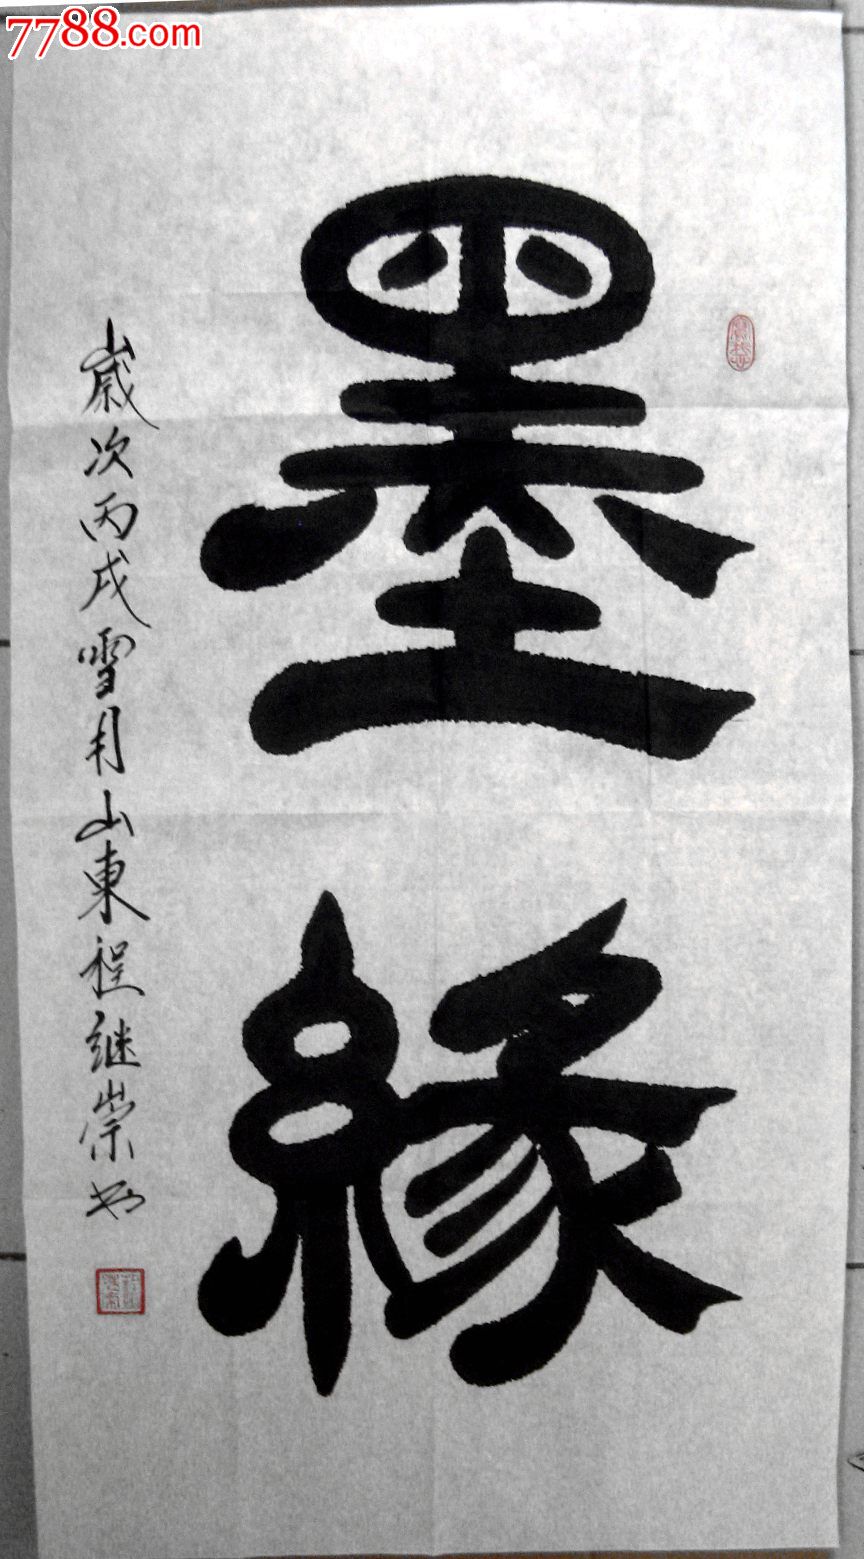 7788.com
墨
緣
歲次丙戌雪月山東程继崇书